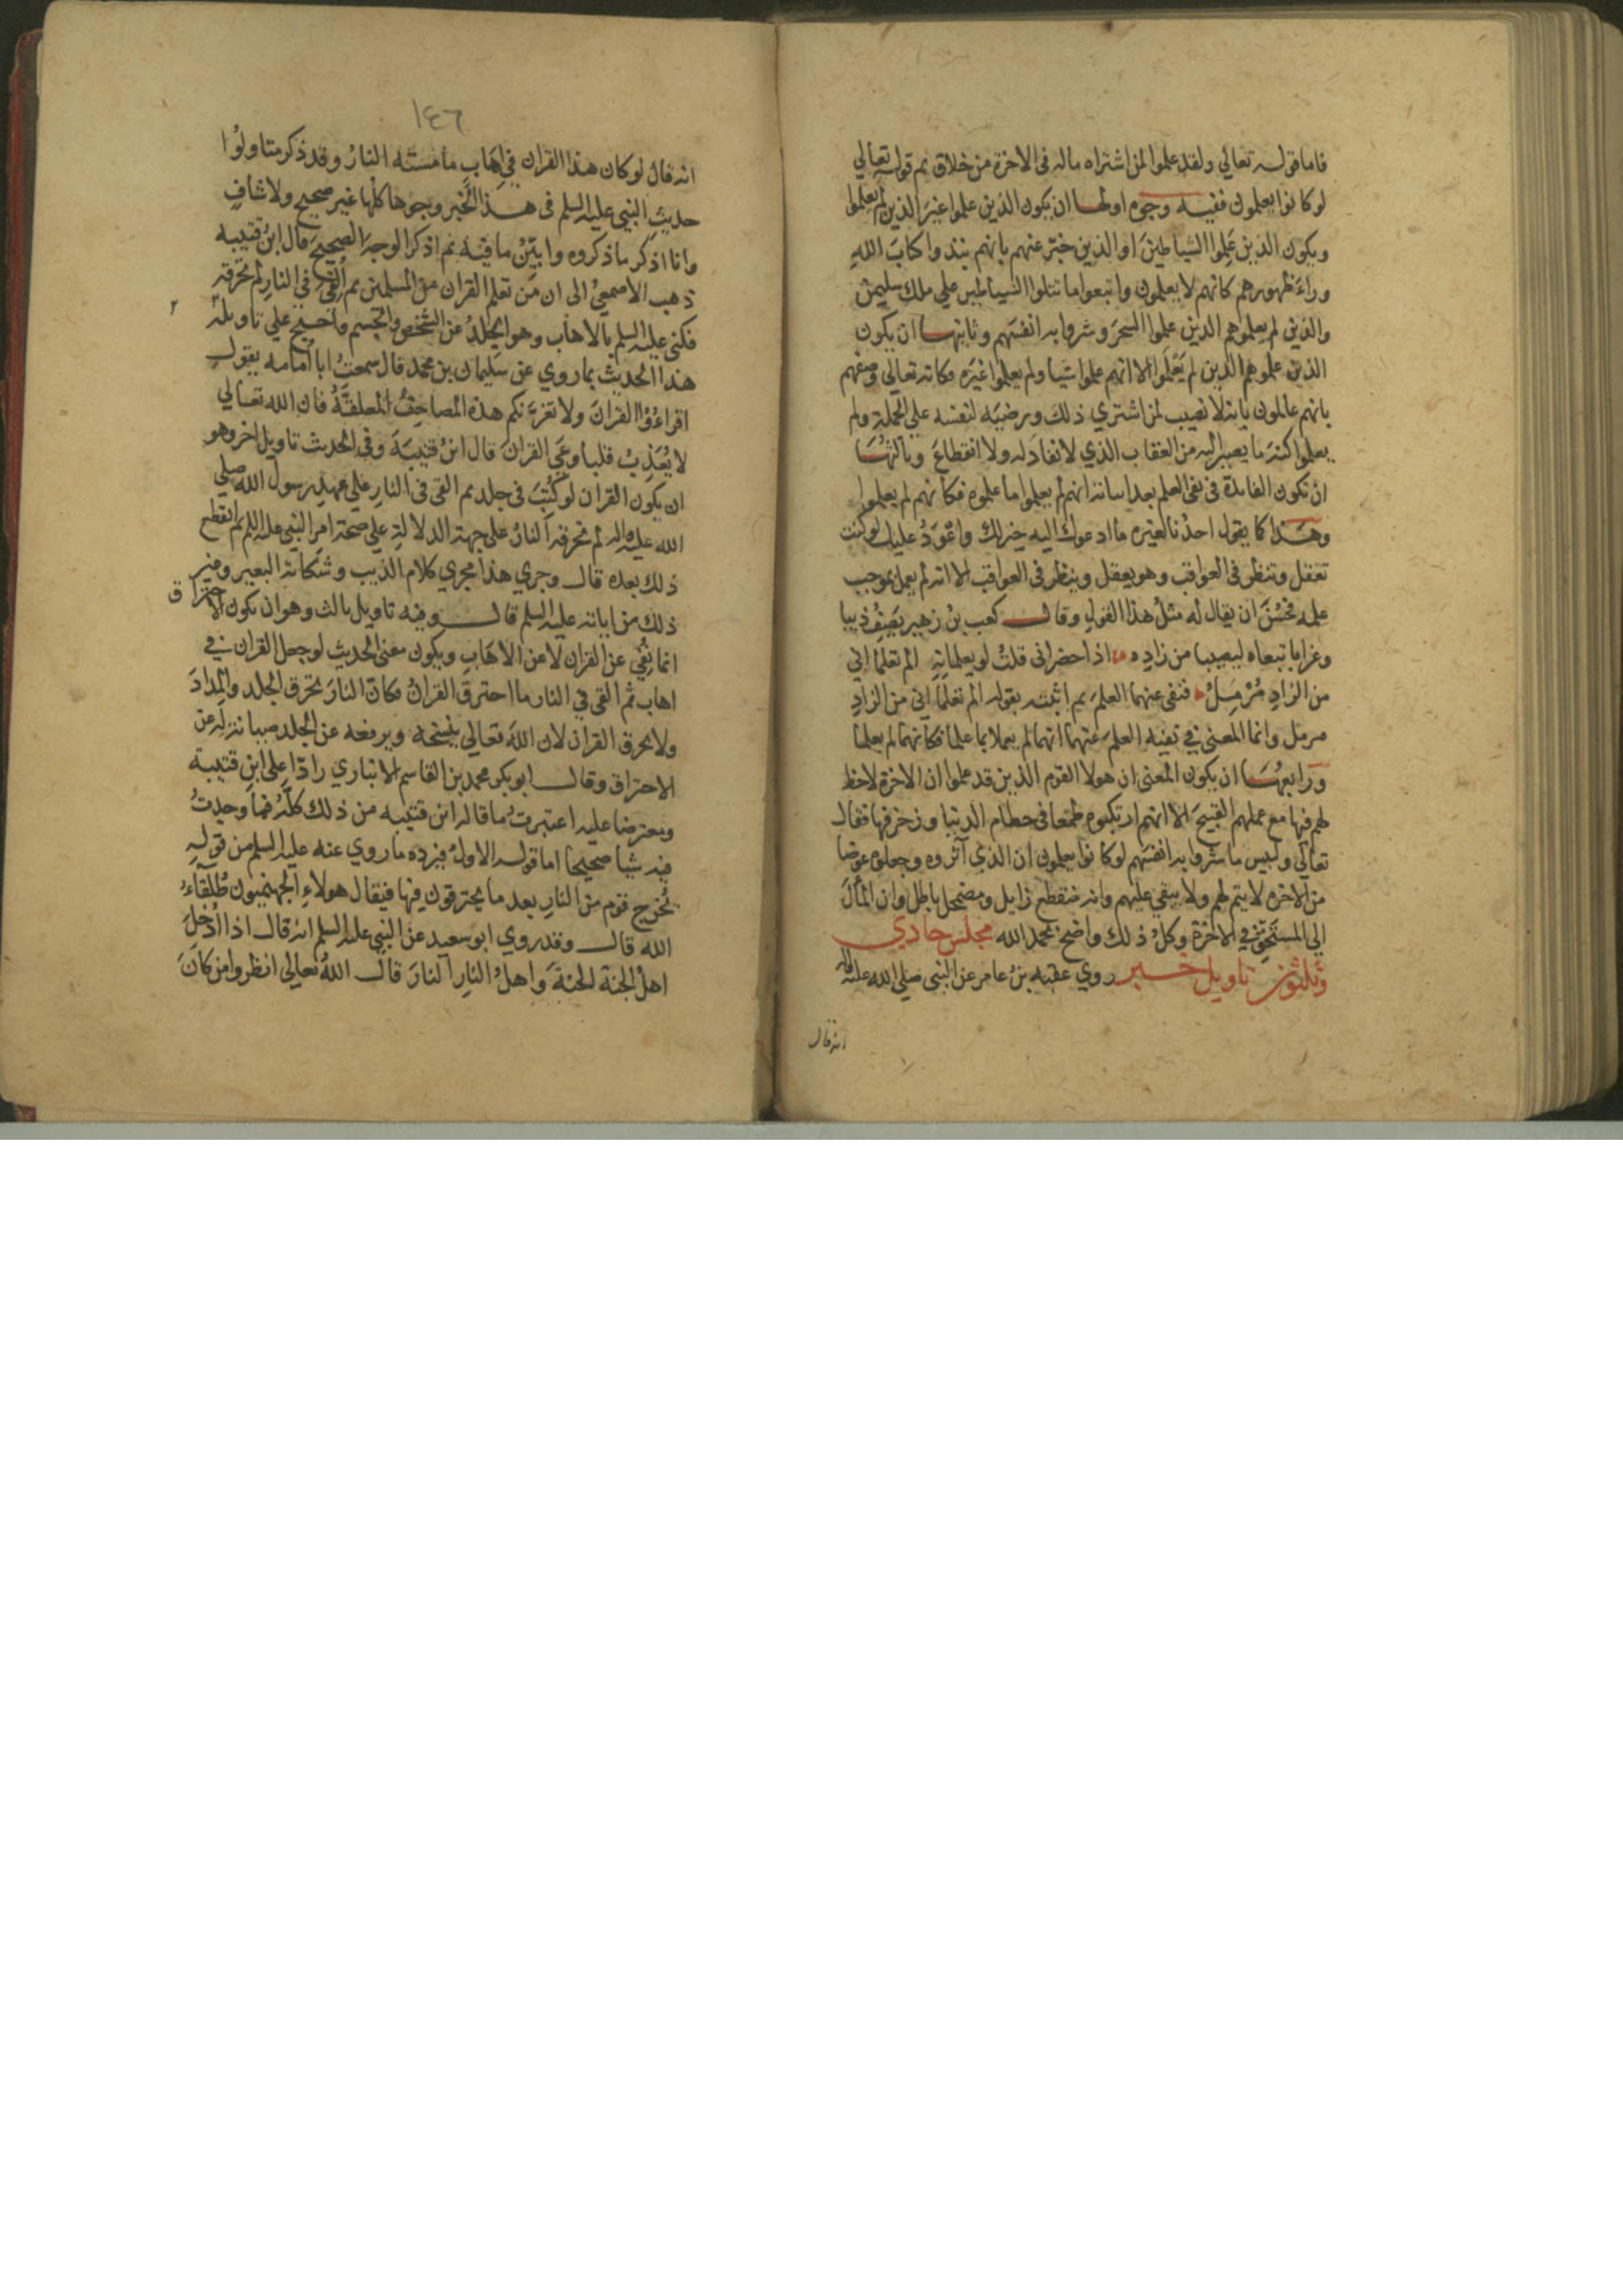 فاما قوله تعالي ولقد علموا لمن اشتراه ماله فى الاخرة من خلاق ثم قوله تعالي
لو كانوا يعلمون ففيه وجوه اولها ان يكون الذين علموا غير الذين لم يعلموا
ويكون الذين علموا الشياطين او الذين خبر عنهم بانهم نبذوا كتاب الله
وراء ظهورهم كانهم لا يعلمون واتبعوا ما تتلوا الشياطين علي ملك سليمن
والذين لم يعلموا هم الذين علموا السحر وشروا به انفسهم وثانيها ان يكون
الذين علموا هم الذين لم يعلموا الا انهم علموا شيا ولم يعلموا غيره فكانه تعالى وصفهم
بانهم عالمون بانه لا نصيب لمن اشتري ذلك ورضيه لنفسه علي الجملة ولم
يعلموا كنه ما يصير اليه من العقاب الذي لا نفاد له ولا انقطاع وثالثها
ان تكون الفائدة فى نفى العلم بعد اثباته انهم لم يعملوا بما علموه فكانهم لم يعلموا
وهذا كما يقول احدنا لغيره ما ادعوك اليه خير لك واعود عليك لو كنت
تعقل وتنظر فى العواقب وهو يعقل وينظر فى العواقب الا انه لم يعمل بموجب
علمه فحسن ان يقال له مثل هذا القول وقال كعب بن زهير يصف ذيبا
وغرابا تبعاه ليصيبا من زاده اذا حضرانى قلت لو يعلمانه الم تعلما اني
من الزاد مرمل فنفى عنهما العلم ثم اثبته بقوله الم تعلما اني من الزاد
مرمل وانما المعنى في نفيه العلم عنهما انهما لم يعملا بما علما فكانهما لم يعلما
ورابعها ان يكون المعنى ان هولا القوم الذين قد علموا ان الاخرة لا حظ
لهم فيها مع عملهم القبيح الا انهم ارتكبوه طمعا فى حطام الدنيا وزخرفها فقال
تعالي ولبيس ما شروا به انفسهم لو كانوا يعلمون ان الذي آثروه وجعلوه عوضا
من الاخره لا يتم لهم ولا يبقي عليهم وانه منقطع زايل ومضمحل باطل وان المآل
الي المستحق في الاخرة وكل ذلك واضح بحمد الله مجلس حادي
وثلثون تاويل خبر روي عقبه بن عامر عن النبى صلي الله عليه واله
انه قال
١٤٦
انه قال لو كان هذا القران في اهاب ما مسته النار وقد ذكر متاولوا
حديث النبي عليه السلم فى هذا الخبر وجوها كلها غير صحيح ولا شاف
وانا اذكر ما ذكروه وابين ما فيه ثم اذكر الوجه الصحيح قال ابن قتيبه
ذهب الاصمعي الى ان من تعلم القران من المسلمين ثم القي في النار لم تحرقه
فكنى عليه السلم بالاهاب وهو الجلد عن الشخص والجسم واحتج علي تاويله
هذا الحديث بما روي عن سليمان بن محمد قال سمعت ابا امامه يقول
اقراءوا القران ولا تغرنكم هذه المصاحف المعلقة فان الله تعالي
لا يعذب قلبا وعي القران قال ابن قتيبة وفى الحديث تاويل اخر وهو
ان يكون القران لو كتب فى جلد ثم القى فى النار علي عهد رسول الله صلي
الله عليه واله لم تحرقه النار على جهة الدلالة علي صحة امر النبي عليه السلم ثم انقطع
ذلك بعده قال وجري هذا مجري كلام الذيب وشكاية البعير وغير
ذلك من اياته عليه السلم قال وفيه تاويل ثالث وهو ان يكون الاحتراق
انما نفي عن القران لا عن الاهاب ويكون معنى الحديث لو جعل القران في
اهاب ثم القى في النار ما احترق القران فكان النار تحرق الجلد والمداد
ولا تحرق القران لان الله تعالي ينسخه ويرفعه عن الجلد صيانة له عن
الاحتراق وقال ابو بكر محمد بن القاسم الانباري رادا على ابن قتيبة
ومعترضا عليه اعتبرت ما قاله ابن قتيبه من ذلك كله فما وجدت
فيه شيا صحيحا اما قوله الاول فيرده ما روي عنه عليه السلم من قوله
يخرج قوم من النار بعد ما يحترقون فيها فيقال هولاء الجهنميون طلقاء
الله قال وقد روي ابو سعيد عن النبي عليه السلم انه قال اذا ادخل
اهل الجنة الجنة واهل النار النار قال الله تعالى انظروا من كان